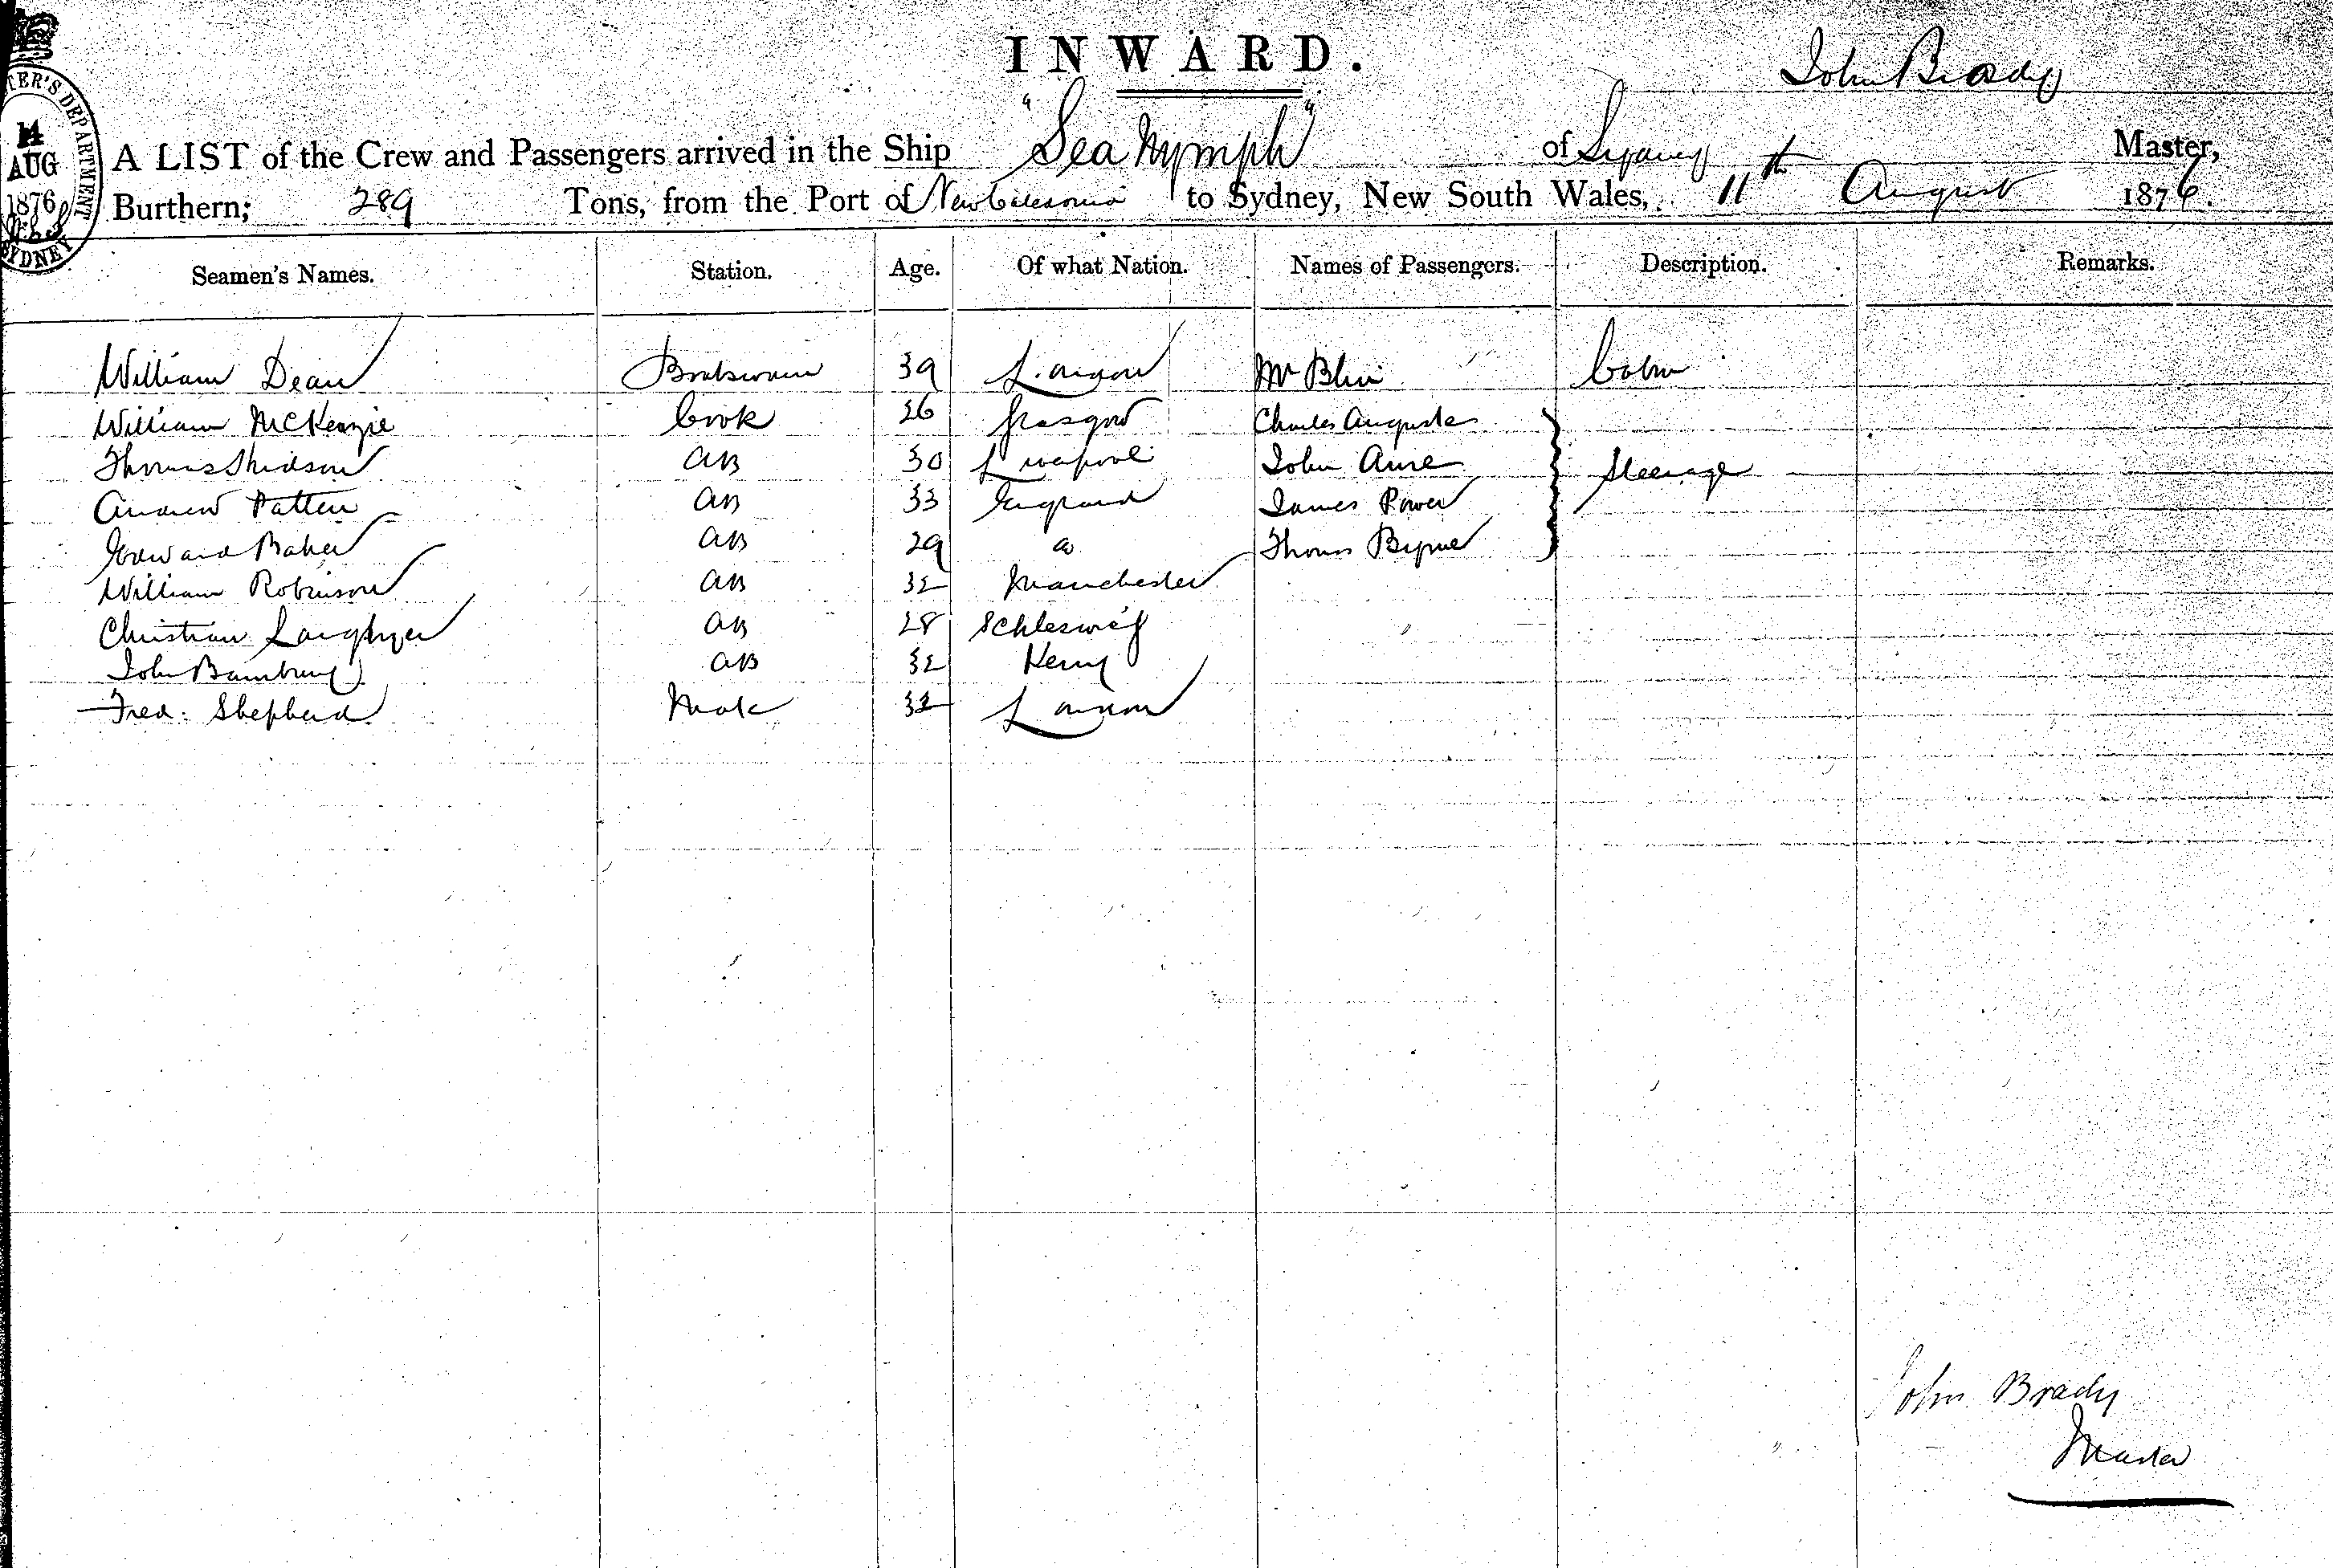 INWARD.
John Brady
A LIST of the Crew and Passengers arrived in the Ship "Sea Nymph" of Sydney Master,
Burthern; 289 Tons, from the Port of New Caledonia to Sydney, New South Wales, 11th August 1876.
TER'S DEPARTMENT
14
AUG
1876
SYDNEY
Seamen's Names. Station. Age. Of what Nation. Names of Passengers. Description. Remarks.
William Dean Boatswain 39 London Mr Cabin
William McKenzie Cook 26 Glasgow Charles Auguste
Thomas Hudson AB 30 Liverpool John Steerage
Andrew Patten AB 33 England James Power
Edward Baker AB 29 Thomas Byrne
William Robinson AB 32 Manchester
Christian AB 28 Schleswig
John AB 32 Kerry
Fred: Shepherd Mate 32 London
John Brady
Master